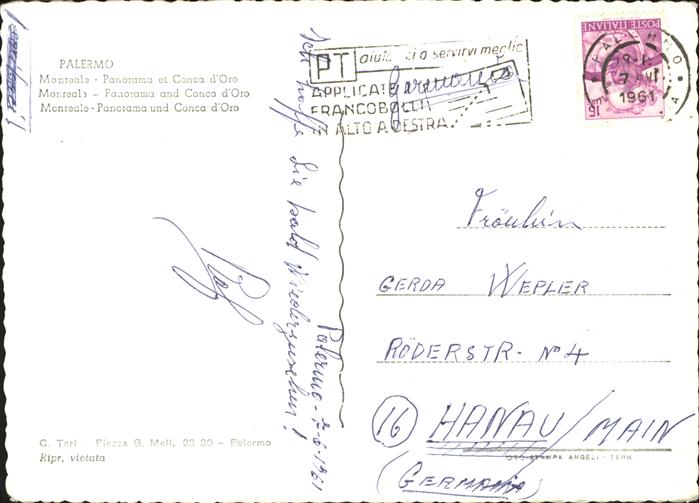 PALERMO
Monreale - Panorama et Conca d'Oro
Monreale - Panorama and Conca d'Oro
Monreale - Panorama und Conca d'Oro
PT
aiutateci a servirvi meglio
APPLICATE I
FRANCOBOLLI
IN ALTO A DESTRA
POSTE ITALIANE
15
1961
Ich hoffe Sie bald Wiederzusehen!
Palermo - 7-6-1961
Fräulein
GERDA WEPLER
RÖDERSTR. No 4
16 HANAU/MAIN
(GERMANIA)
G. Teri - Piazza G. Meli, 29 30 - Palermo
Ripr. vietata
STAMPA ANGELI - TERNI